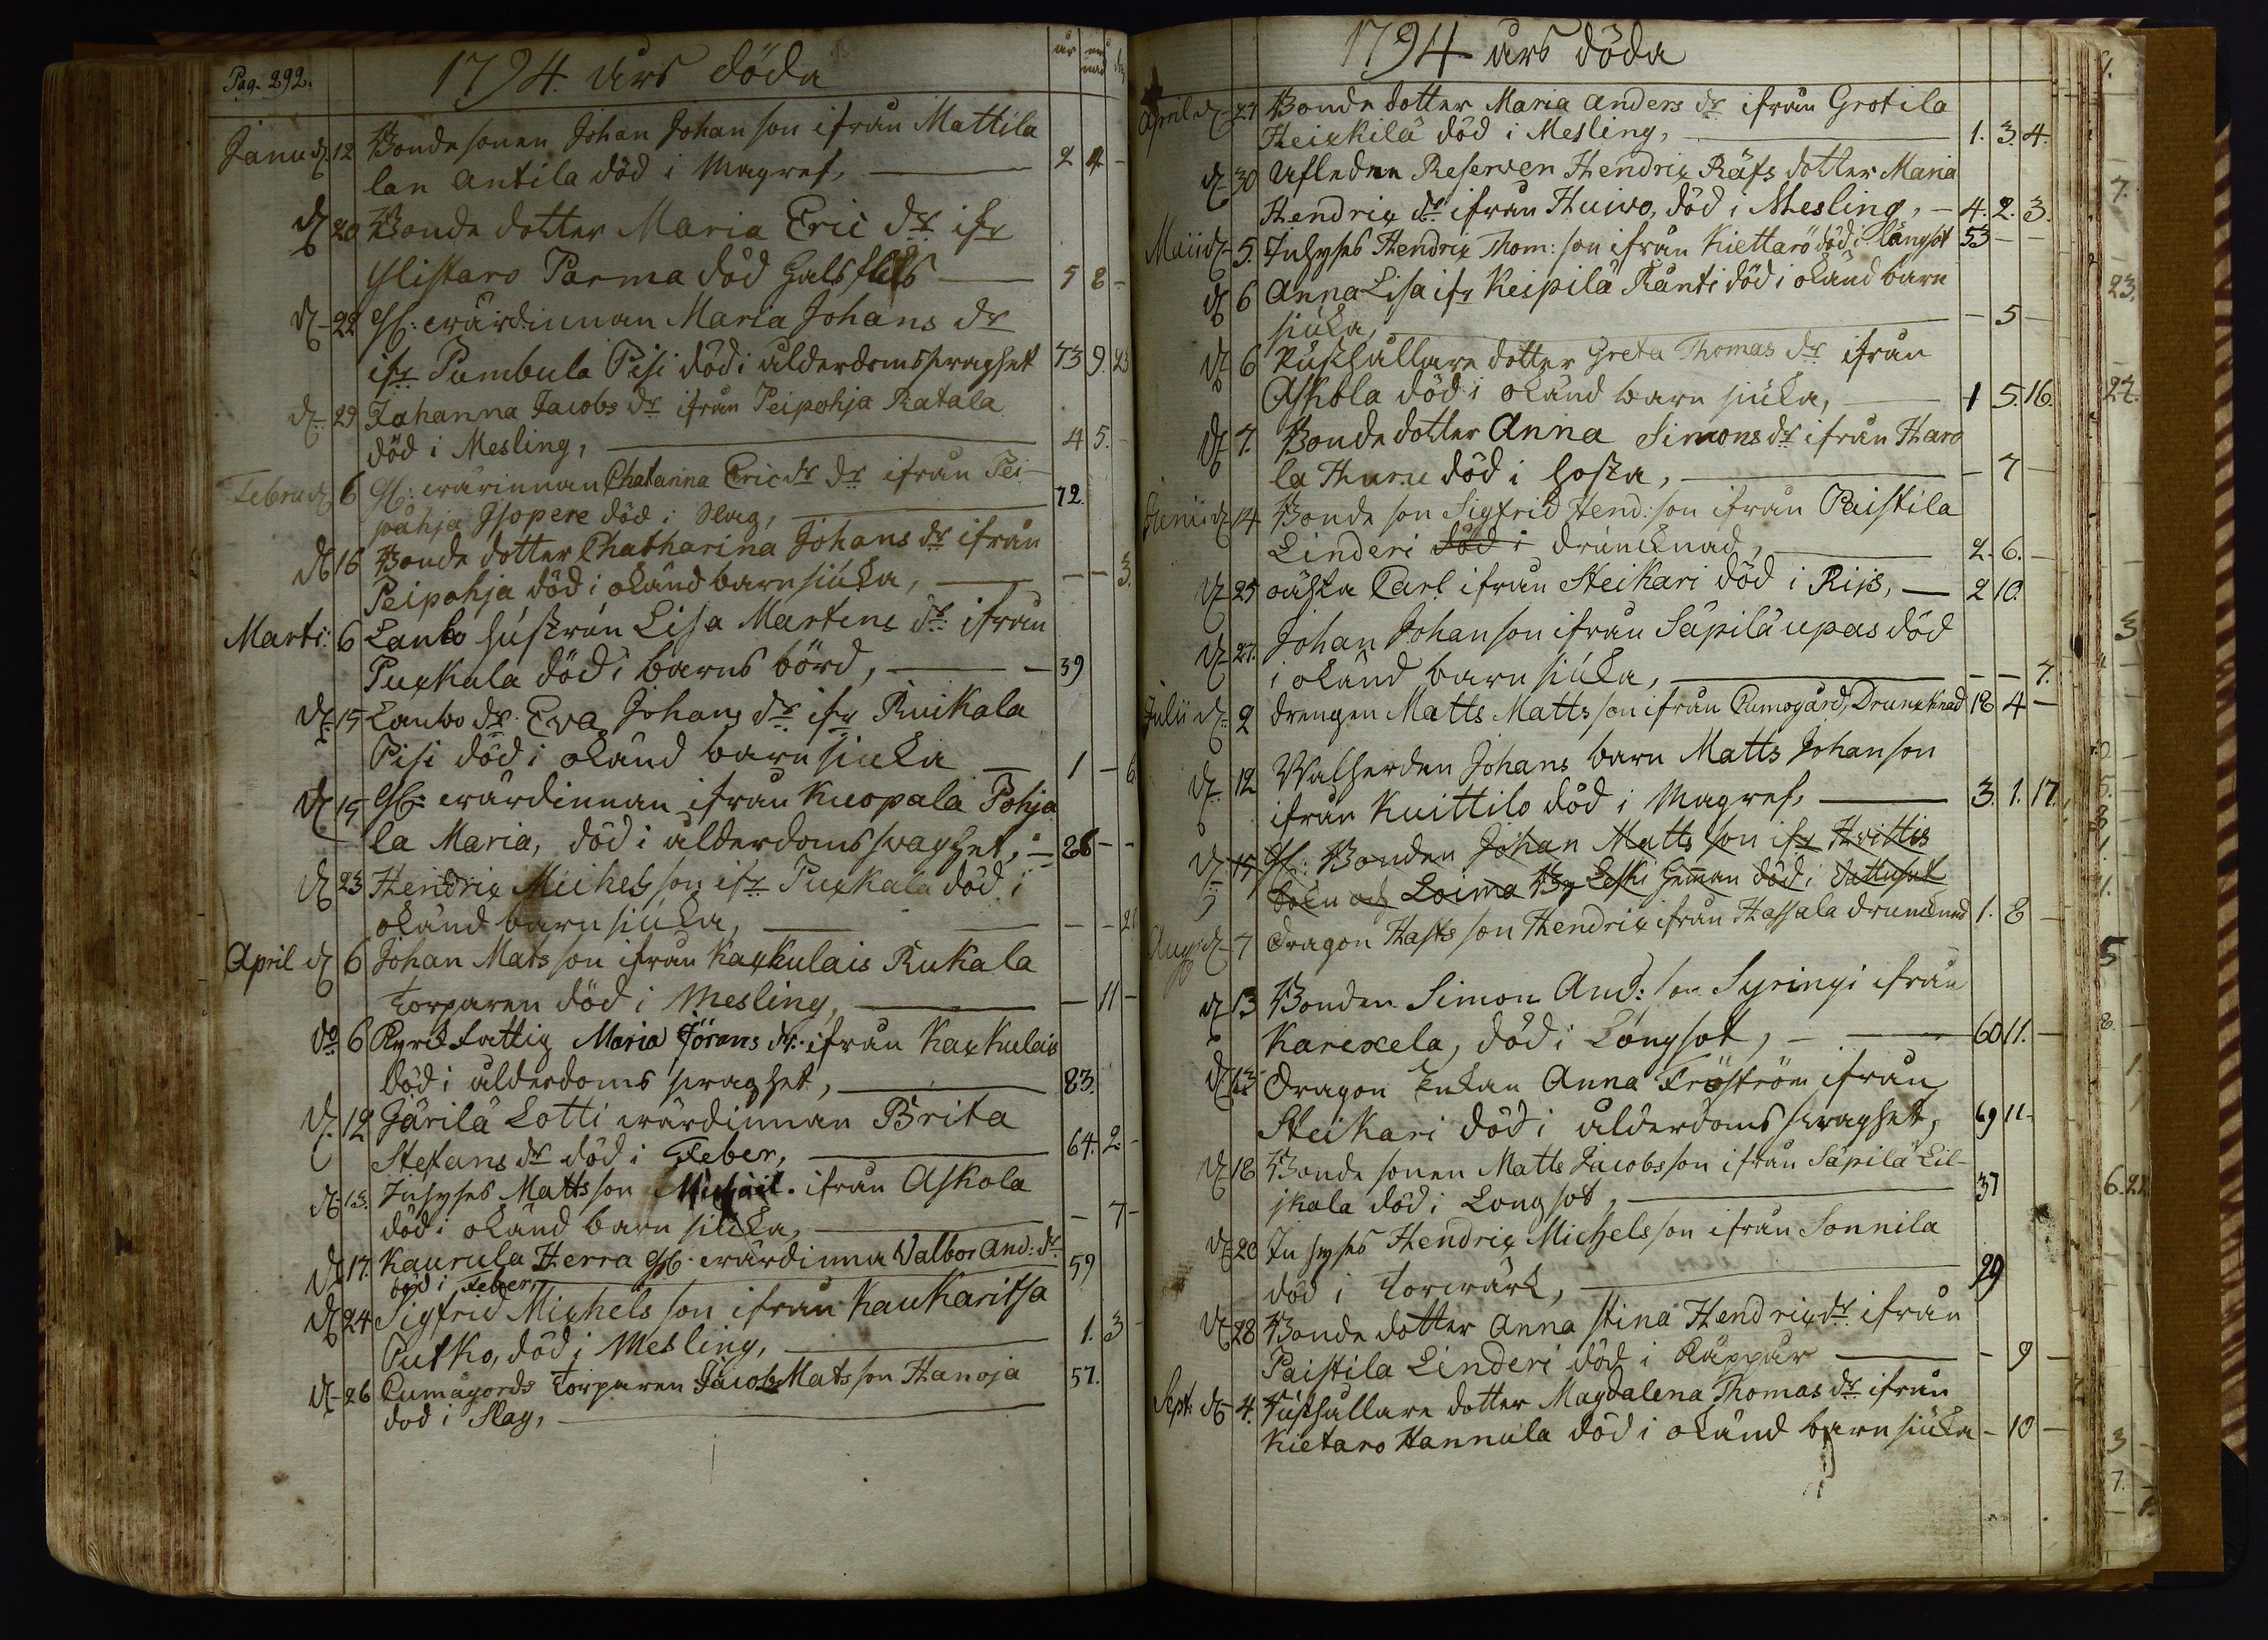 Pag. 292.
1794. års döda
år månad dag
Janu d. 12 Bonde sonen Johan Johanson ifrån Mattila
lan Antila död i Magref, 2 4 -
d 20 Bonde dotter Maria Eric dr ifr
Ylistaro Parma död Halsfluss 5 8 -
d. 22 Gl: wärdinnan Maria Johans dr
ifr Pumbula Pisi död i ålderdomsswaghet 73 9. 23
d. 29 Johanna Jacobs dr ifrån Peipohja Ratala
död i Mesling, 4 5. -
Febru d 6 Gl: wärinnan Chatarina Eric dr dr ifrån Pei-
påhja Isopere död i Slag, 72.
d 16 Bonde dotter Chatharina Johans dr ifrån
Peipohja död i okänd barnsiuka, - - 3.
Marti: 6 Lanbo hustrun Lisa Martens dr: ifrån
Puxkala död i barns börd, - 39
d. 15 Lanbo dr. Eva Johans dr ifr Ruikala
Pisi död i okänd barnsiuka 1 - 6
d 15 Gl: wärdinnan ifrån Kuopala Pohja
la Maria, död i ålderdomsswaghet, 86 - -
d 23 Hendrix Michelsson ifr Puxkala död i
okänd barnsiuka, - - 21
April d 6 Johan Matsson ifrån Kaxkulais Rukala
torparen död i Mesling, - 11 -
do 6 Kyrk fattig Maria Jörans dr: ifrån Kaxkulais
död i ålderdomsswaghet, 83.
d. 12 Järilä Lotti wärdinnan Brita
Stefans dr död i Feber, 64. 2 -
d 13. Inhyses Mattsson Michäel. ifrån Askola
död i okänd barnsiuka, - 7 -
d 17. Kaurula Herra Gl. wärdinna Valbor And: dr
död i Feber, 59
d 24 Sigfrid Michelsson ifrån Kaukaritsa
Putko, död i Mesling, 1. 3 -
d - 26 Cumågords torparen Jacob Matsson Hanoja 57.
död i Slag,
1794 års döda
April d - 27 Bonde dotter Maria Anders dr ifrån Grotila
Heixkilä död i Mesling, 1. 3. 4.
d - 30 Afledne Reserven Hendrix Räfs dotter Maria
Hendrix dr ifrån Huiwo, död i Mesling, - 4. 2. 3.
Maii d - 5. Inhyses Hendrix Thom: son ifrån Kiettarö död i långsot 53 - -
d 6 Anna Lisa ifr Keipilä Ränti död i okänd barn
siuka, - 5 -
d 6 Rusthållare dotter Greta Thomas dr ifrån
Askola död i okänd barnsiuka, 1 5. 16.
d 7. Bonde dotter Anna Simons dr ifrån Haro
la Thuru död i hosta, - 7 -
Junii d 14 Bonde son Sigfrid Hend: son ifrån Paistila
Linderi död i druncknad, 2. 6. -
d 25 oäkta Carl ifrån Steikari död i Rijs, 2 10.
d - 27. Johan Johanson ifrån Säpilä upas död
i okänd barnsiuka, - - 7.
Julii d. 9 drengen Matts Mattsson ifrån Cumogård, Drunxknad 18 4 -
d. 12 Walherden Johans barn Matts Johanson
ifrån Kuittilo död i Magref, 3. 1. 17.
d. 15 Gl: Bonden Johan Mattsson ifr Hvittis
Sokn och Loima By Leski hemman död i Wattusot
Aug: d - 7 Dragon Hasts son Hendrix ifrån Hassala druncknad 1. 8 -
d 13 Bonden Simon And: son Syringi ifrån
Karexela, död i Longsot, 60 11. -
d 13 Dragon Enkan Anna Fröström ifrån
Steikari död i ålderdomsswaghet, 69 11 -
d 18 Bonde sonen Matts Jacobsson ifrån Säpilä Lil-
jkala död i Longsot, 37
d - 20 Inhyses Hendrix Michelsson ifrån Sonnila
död i torwärk, 29
d 28 Bonde dotter Anna Stina Hendrix dr ifrån
Paistila Linderi död i Käppår - 9 -
Sept: d - 4. Rusthållare dotter Magdalena Thomas dr ifrån
Kietaro Hannula död i okänd barnsiuka - 10 -